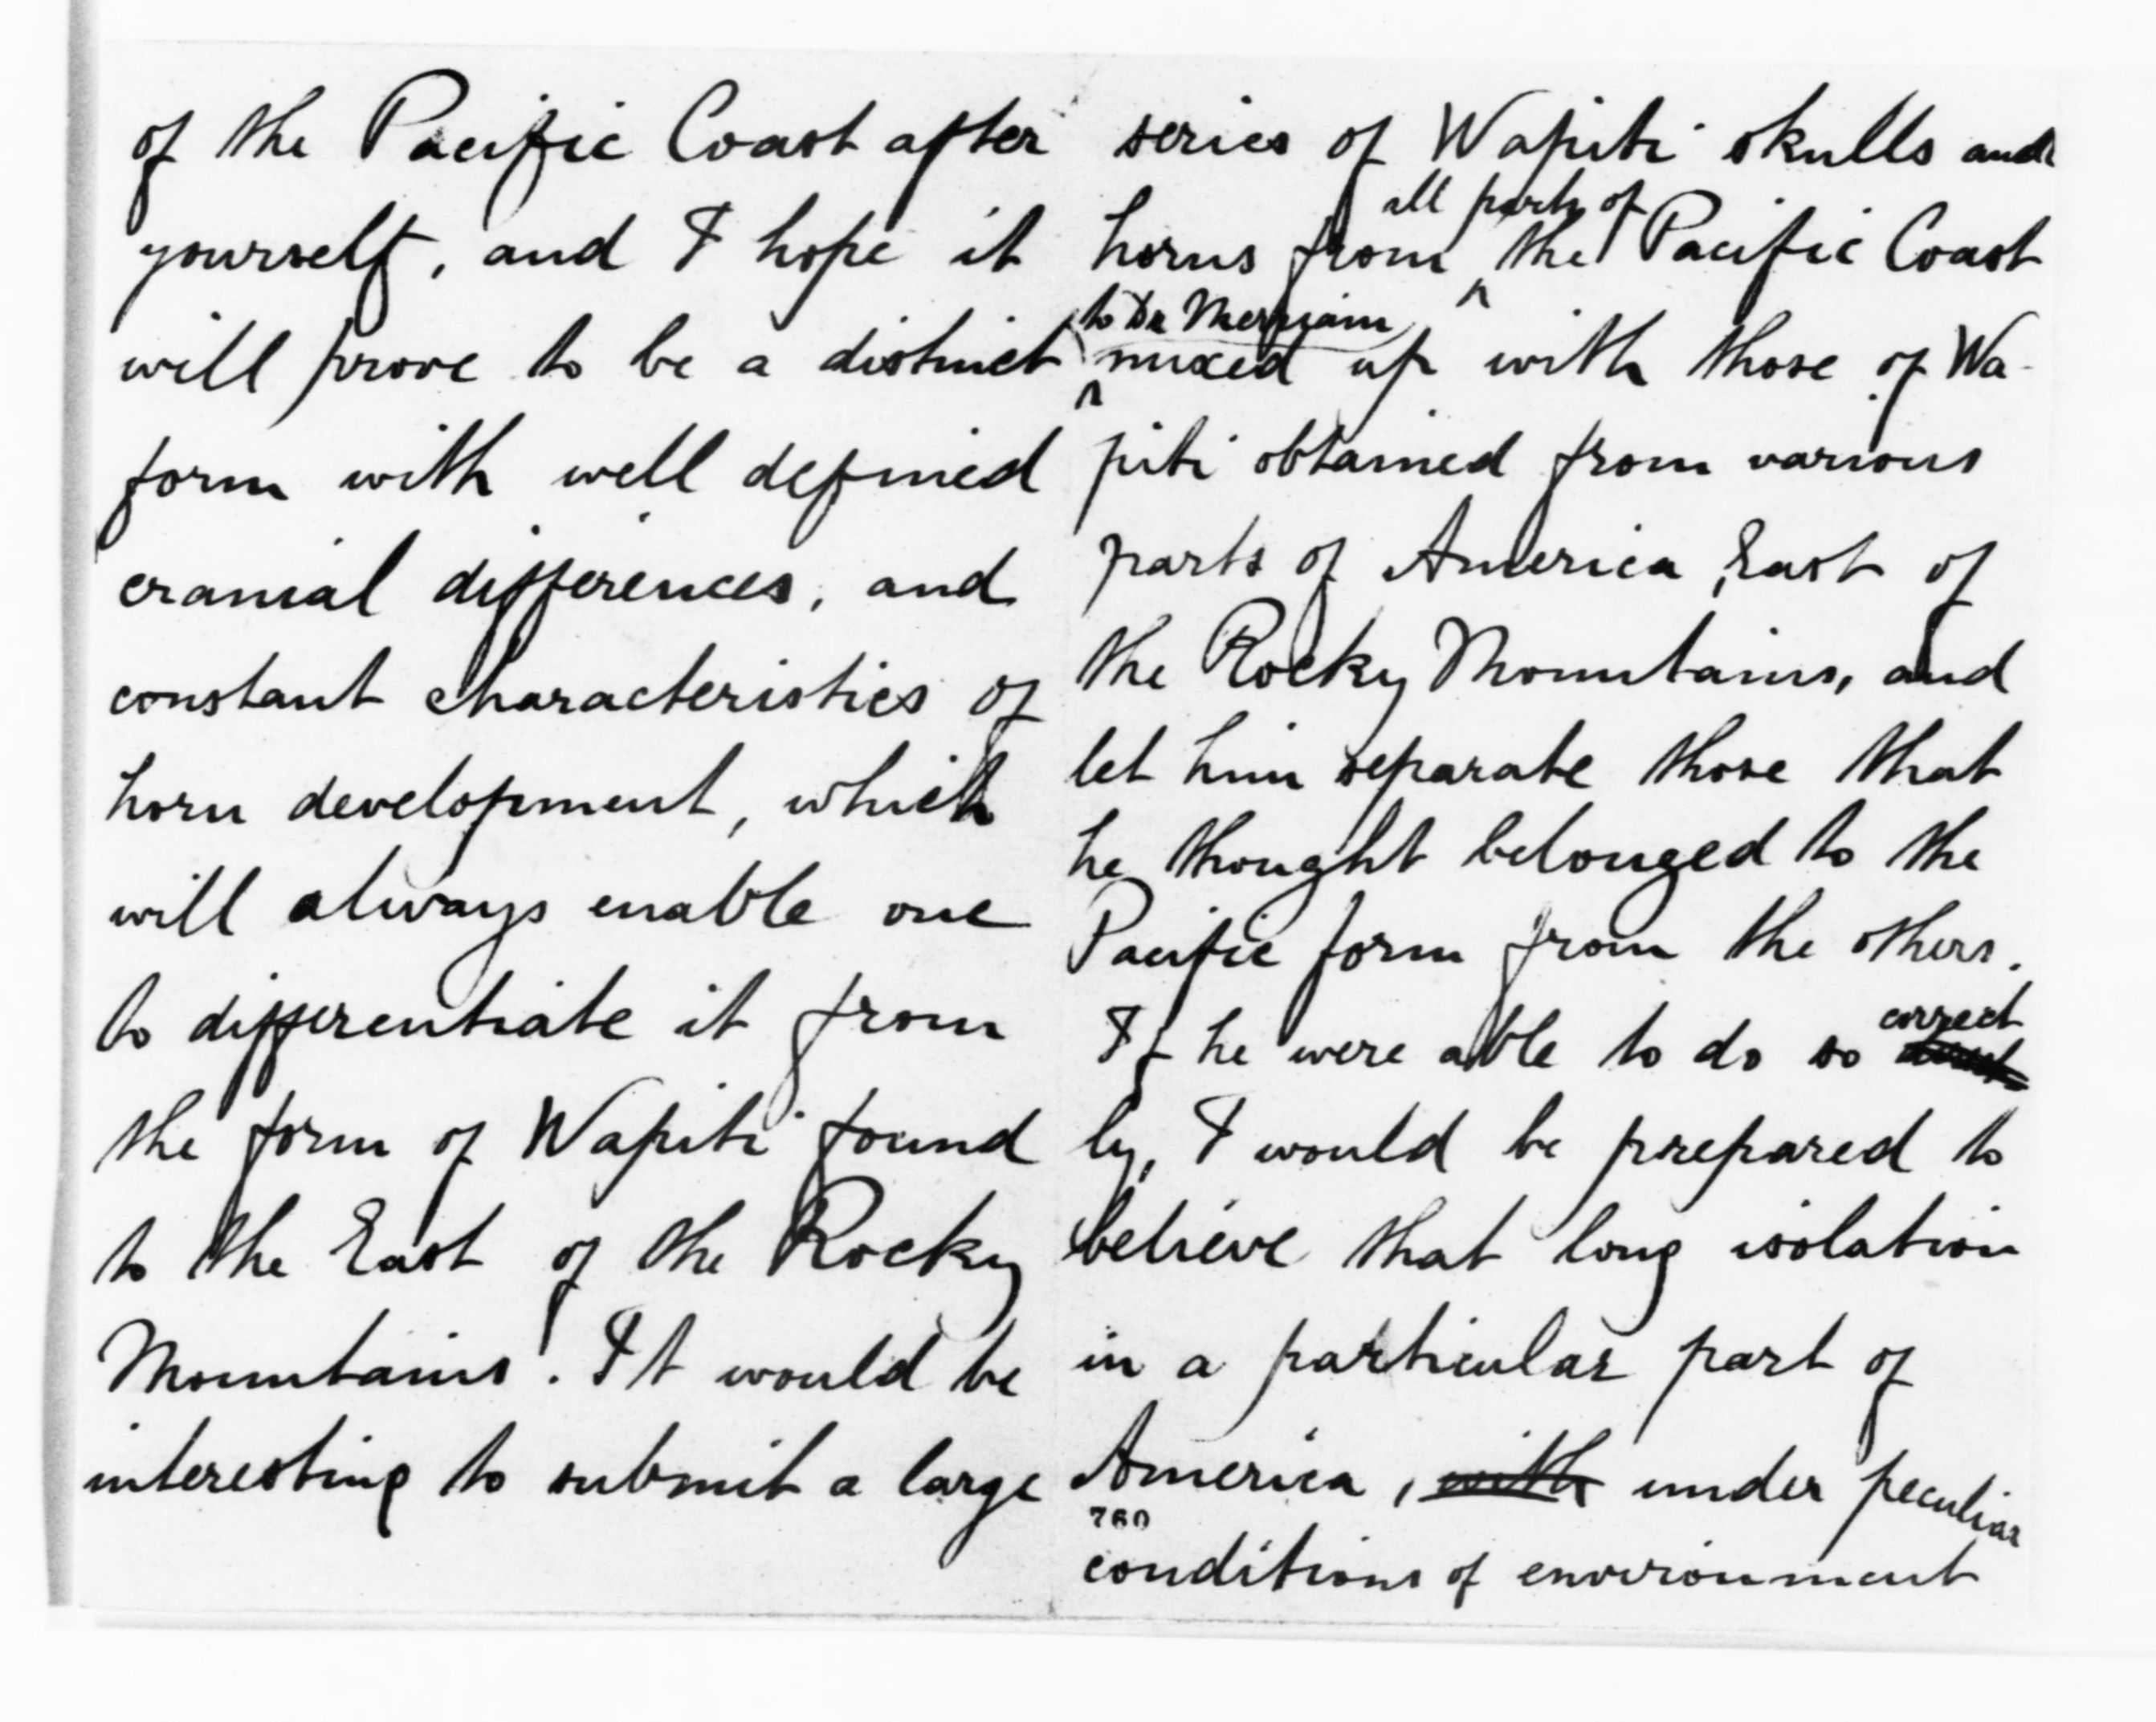 of the Pacific Coast after
yourself, and I hope it
will prove to be a distinct
form with well defined
cranial differences, and
constant characteristics of
horn development, which
will always enable one
to differentiate it from
the form of Wapiti found
to the East of the Rocky
Mountains. It would be
interesting to submit a large
series of Wapiti skulls and
all parts of
horns from ^ the Pacific Coast
to Dr Merriam
^ mixed up with those of Wa-
piti obtained from various
parts of America, East of
the Rocky Mountains, and
let him separate those that
he thought belonged to the
Pacific form from the others.
correct
If he were able to do so
ly, I would be prepared to
believe that long isolation
in a particular part of
America, with under peculiar
760
conditions of environment